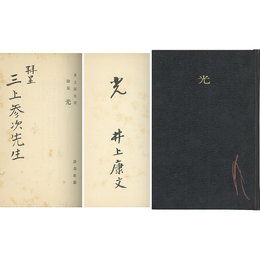 拝呈
三上参次先生
井上康文
詩集 光
光
井上康文
光